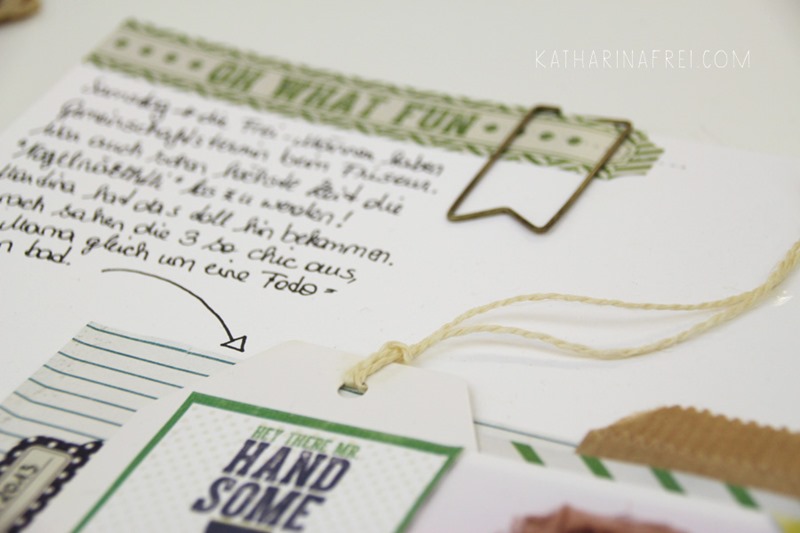 KATHARINAFREI.COM
OH WHAT FUN
die Frei-Männer haben
Gemeinschaftstermin beim Friseur.
War auch schon höchste Zeit die
los zu werden!
hat das toll hin bekommen.
sahen die 3 so chic aus,
Mama gleich um eine Foto=
bad.
HEY THERE MR.
HAND
SOME
2013